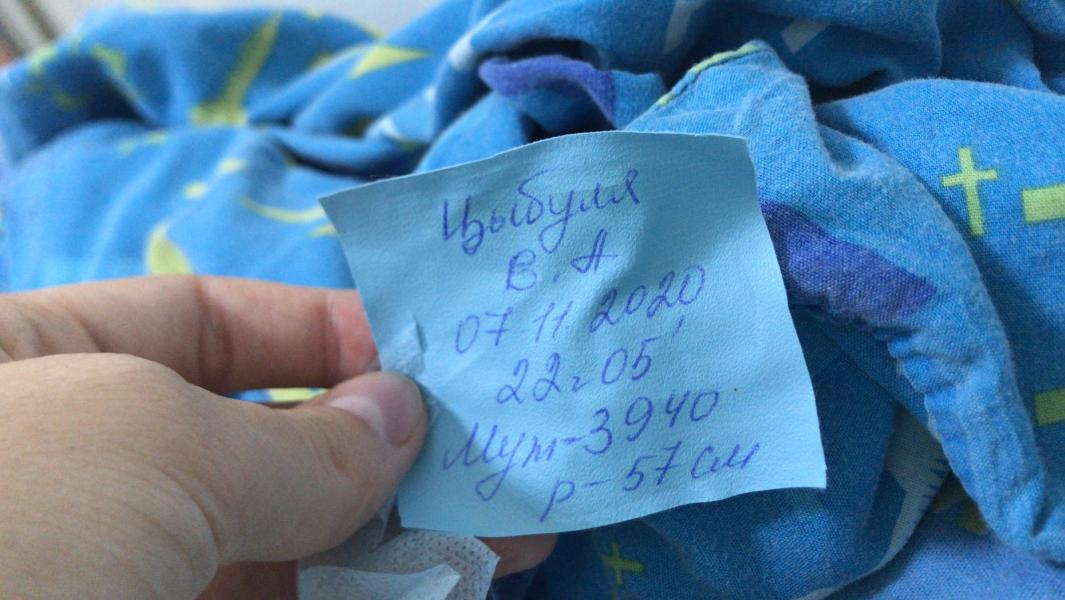 Цыбуля
В. А
07 11 2020
22г05'
Муж-3940
р-57см